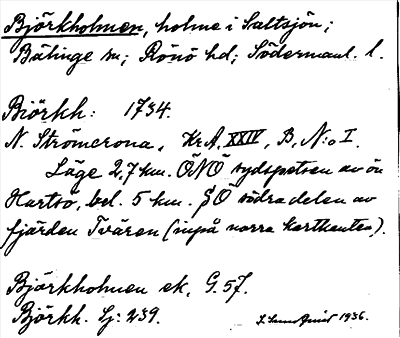 Björkholmen, holme i Saltsjön;
Bälinge sn; Rönö hd; Södermanl. l.
Biörkh: 1734.
N. Strömcrona, Kr.A. XXIV, B, N:o I.
Läge 2,7 km. ÖNÖ sydspetsen av ön
Hartsö, bel. 5 km. SÖ södra delen av
fjärden Tvären (inpå norra kartkanten).
Björkholmen ek. G. 57.
Björkh. Sj: 239.
1936.